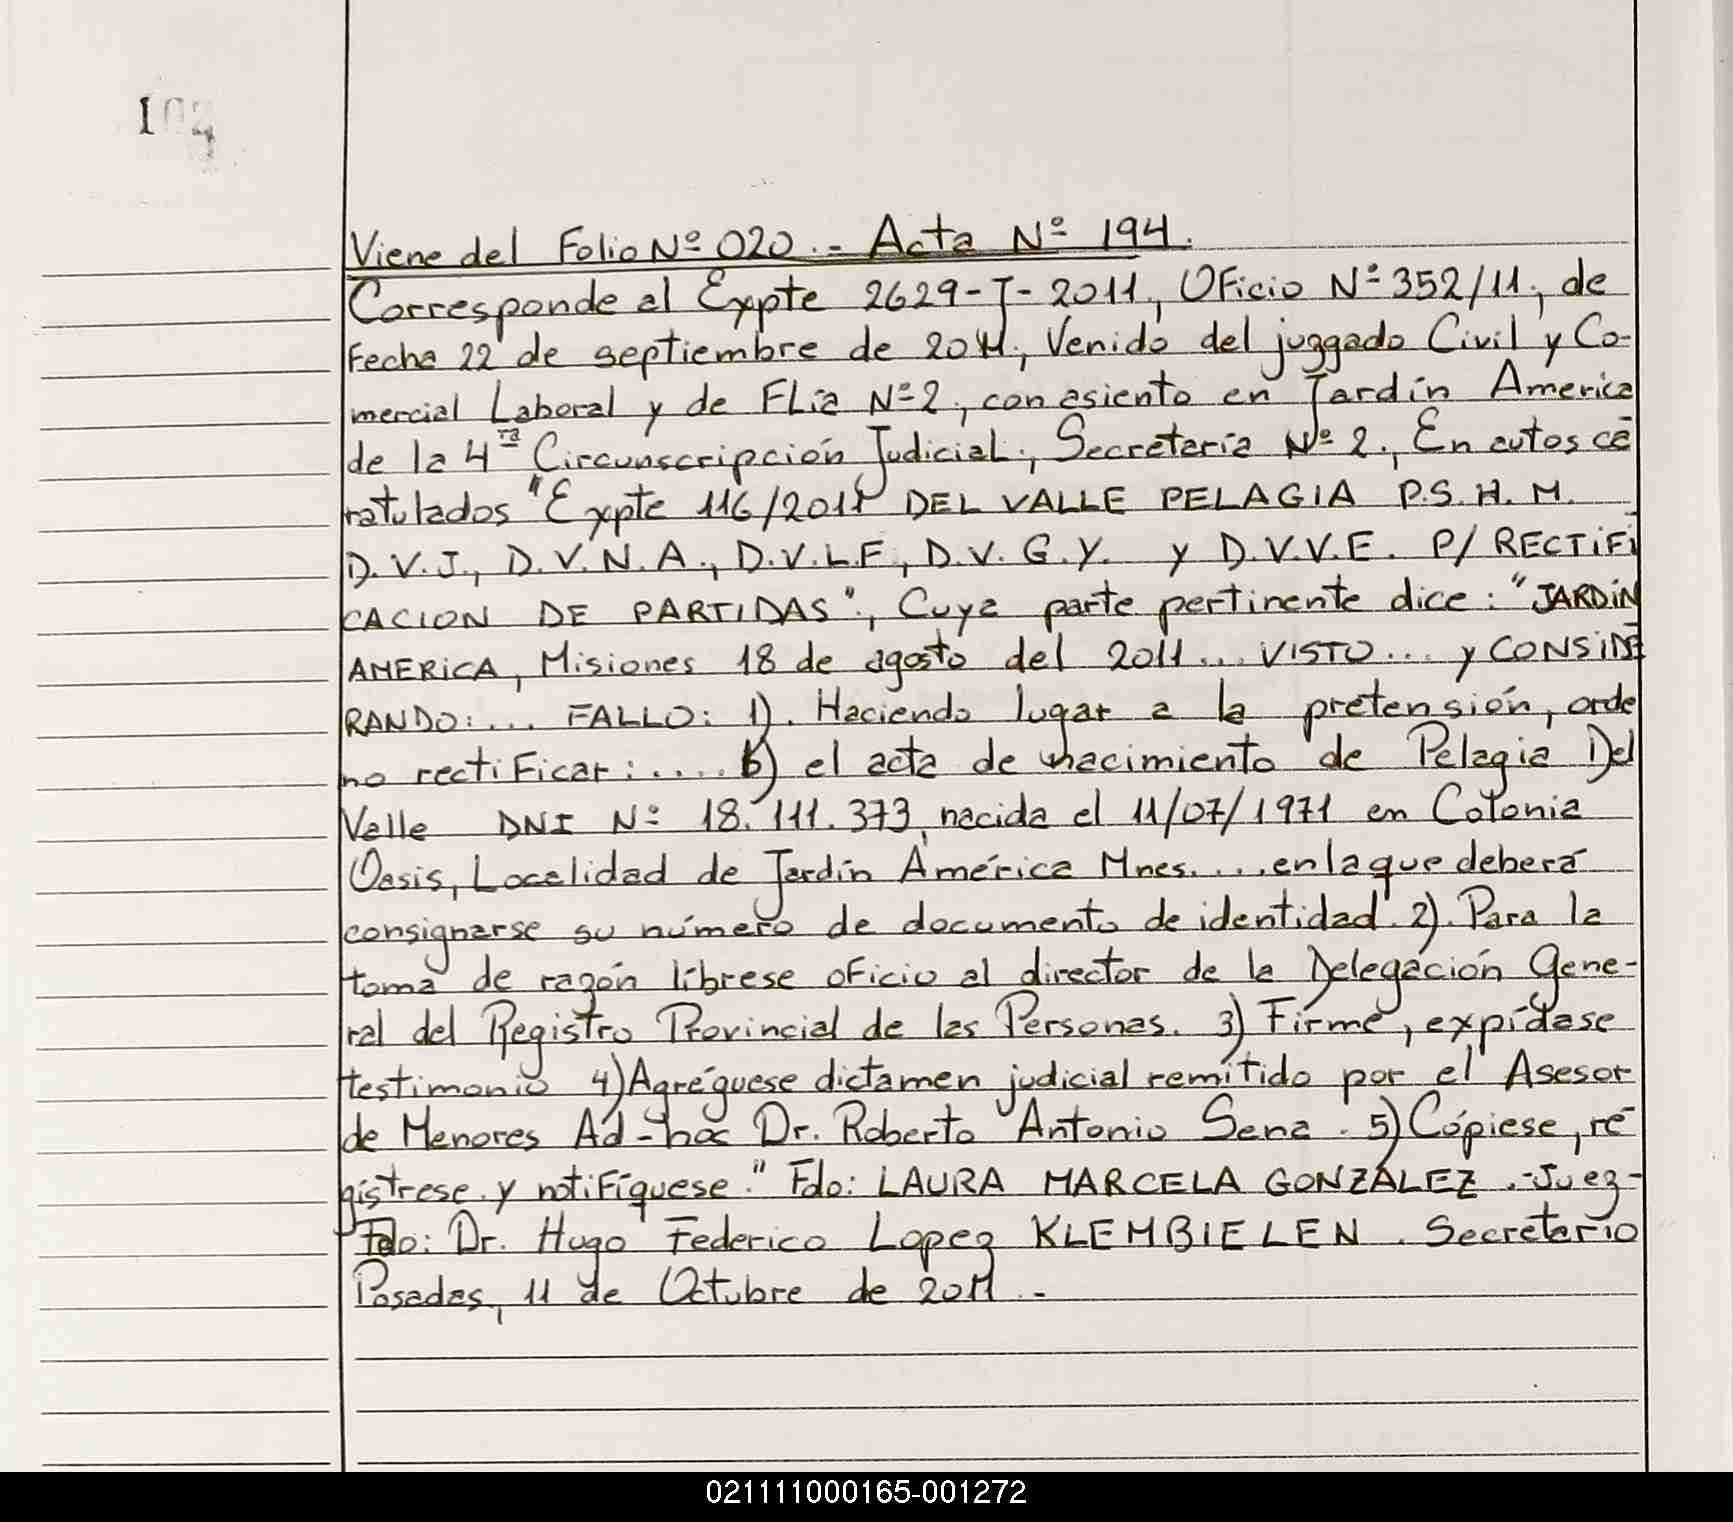 Viene del Folio Nº 020.- Acta Nº 194.
Corresponde al Expte 2629-J-2011, Oficio Nº 352/11, de
Fecha 22 de septiembre de 2011, Venido del juzgado Civil y Co-
mercial Laboral y de FLia Nº 2, con asiento en Jardín America
de la 4ta Circunscripción Judicial., Secretaría Nº 2., En autos ca
ratulados "Expte 116/2011 DEL VALLE PELAGIA P.S.H.M.
D.V.J., D.V.N.A., D.V.L.F, D.V.G.Y. y D.V.V.E. P/ RECTIFI
CACION DE PARTIDAS", Cuya parte pertinente dice: "JARDIN
AMERICA, Misiones 18 de agosto del 2011... VISTO... y CONSIDE
RANDO:... FALLO: 1). Haciendo lugar a la pretensión, orde
no rectificar:.... b) el acta de nacimiento de Pelagia Del
Valle DNI Nº 18.111.373, nacida el 11/07/1971 en Colonia
Oasis, Localidad de Jardín América Mnes.... en la que deberá
consignarse su número de documento de identidad. 2). Para la
toma de razón líbrese oficio al director de la Delegación Gene-
ral del Registro Provincial de las Personas. 3) Firme, expídase
testimonio 4) Agréguese dictamen judicial remitido por el Asesor
de Menores Ad-hoc Dr. Roberto Antonio Sena. 5) Cópiese, re
gístrese y notifíquese." Fdo: LAURA MARCELA GONZÁLEZ.-Juez-
Fdo: Dr. Hugo Federico Lopez KLEMBIELEN. Secretario
Posadas, 11 de Octubre de 2011.-
021111000165-001272